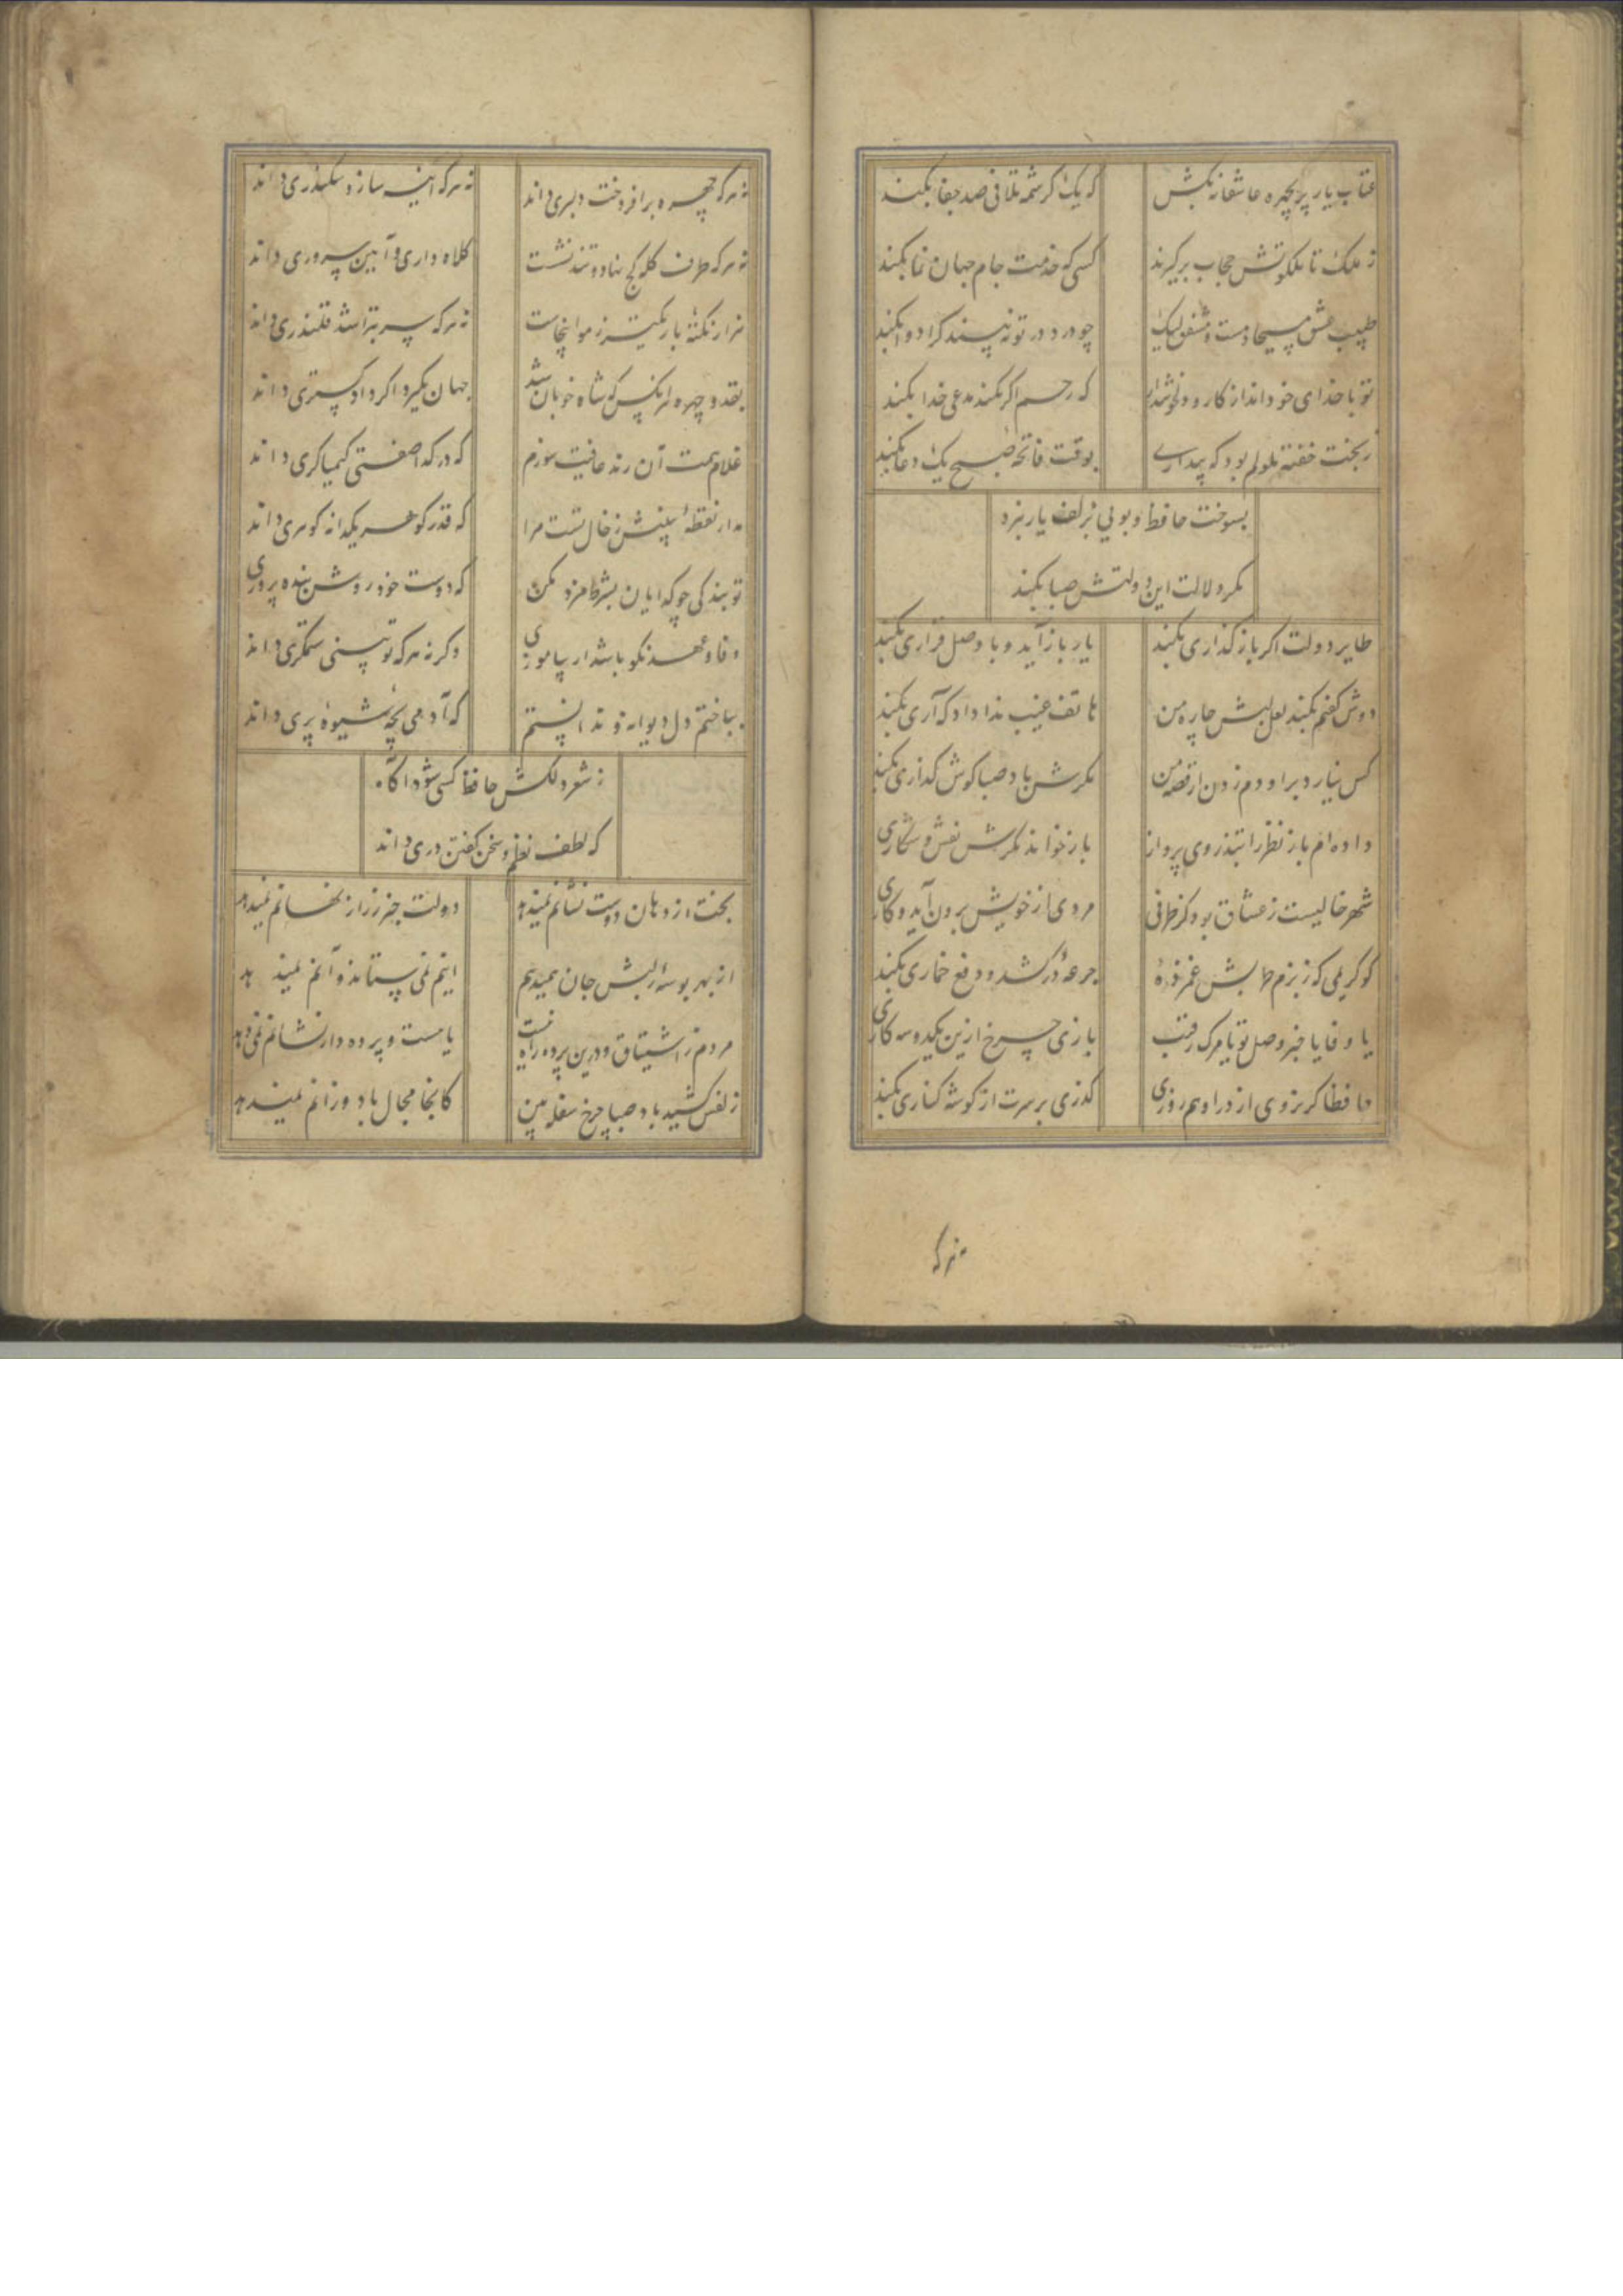 عتاب یار پریچهره عاشقانه بکش که یک کرشمه تلافی صد جفا بکند
ز ملک تا ملکوتش حجاب برگیرند کسی که خدمت جام جهان نما بکند
طبیب عشق مسیحا دمست و مشفق لیک چو درد در تو نه بیند کرا دوا بکند
تو با خدای خود انداز کار و دلخوشدار که رحم اگر نکند مدعی خدا بکند
ز بخت خفته ملولم بود که بیداری بوقت فاتحه صبح یک دعا بکند
بسوخت حافظ و بویی بزلف یار نبرد
مگر دلالت این دولتش صبا بکند
طایر دولت اگر باز گذاری بکند یار باز آید و با وصل قراری بکند
دوش گفتم بکند لعل لبش چاره من هاتف غیب ندا داد که آری بکند
کس نیارد بر او دم زدن از قصه من مگرش باد صبا گوش گذاری بکند
داده ام باز نظر را بتذروی پرواز باز خواند مگرش نقش و شکاری
شهر خالیست ز عشاق بود کز طرفی مردی از خویش برون آید و کاری
کو کریمی که ز بزم طربش غمزده جرعه درکشد و دفع خماری بکند
یا وفا یا خبر وصل تو یا مرگ رقیب بازی چرخ ازین یکدو سه کاری
حافظا گر نروی از در او هم روزی گذری بر سرت از گوشه کناری بکند
نه هر که
نه هر که چهره برافروخت دلبری داند نه هر که آینه سازد سکندری داند
نه هر که طرف کله کج نهاد و تند نشست کلاه داری و آیین سروری داند
هزار نکته باریکتر ز مو اینجاست نه هر که سر بتراشد قلندری داند
بقد و چهره هر آنکس که شاه خوبان شد جهان بگیرد اگر دادگستری داند
غلام همت آن رند عافیت سوزم که در گدا صفتی کیمیاگری داند
مدار نقطه بینش ز خال تست مرا که قدر گوهر یکدانه گوهری داند
تو بندگی چو گدایان بشرط مزد مکن که دوست خود روش بنده پروری
وفا و عهد نکو باشد ار بیاموزی وگرنه هر که تو بینی ستمگری داند
بباختم دل دیوانه و ندانستم که آدمی بچه شیوه پری داند
ز شعر دلکش حافظ کسی شود آگاه
که لطف نظم و سخن گفتن دری داند
بخت از دهان دوست نشانم نمیدهد دولت خبر ز راز نهانم نمیدهد
از بهر بوسه ز لبش جان همیدهم اینم نمی ستاند و آنم نمیدهد
مردم ز اشتیاق و درین پرده راه نیست یا هست و پرده دار نشانم نمی دهد
زلفش کشید باد صبا چرخ سفله بین کانجا مجال باد وزانم نمیدهد